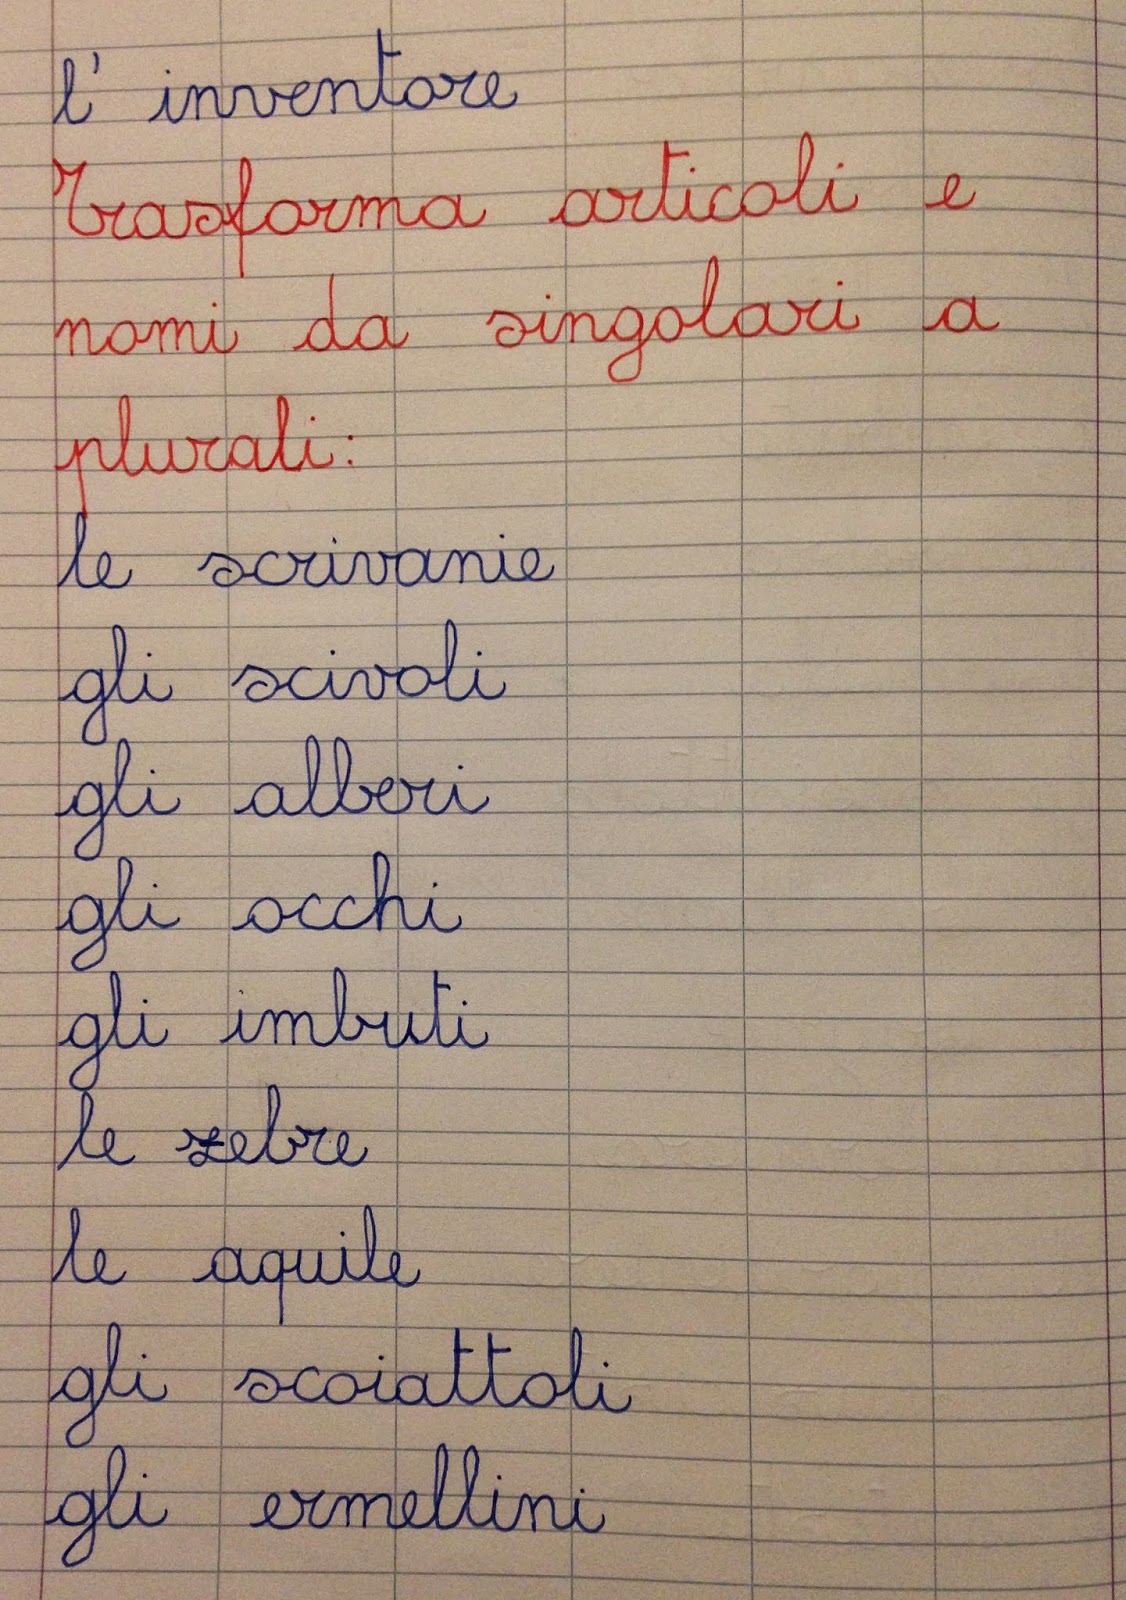 l' inventore
Trasforma articoli e
nomi da singolari a
plurali:
le scrivanie
gli scivoli
gli alberi
gli occhi
gli imbuti
le zebre
le aquile
gli scoiattoli
gli ermellini